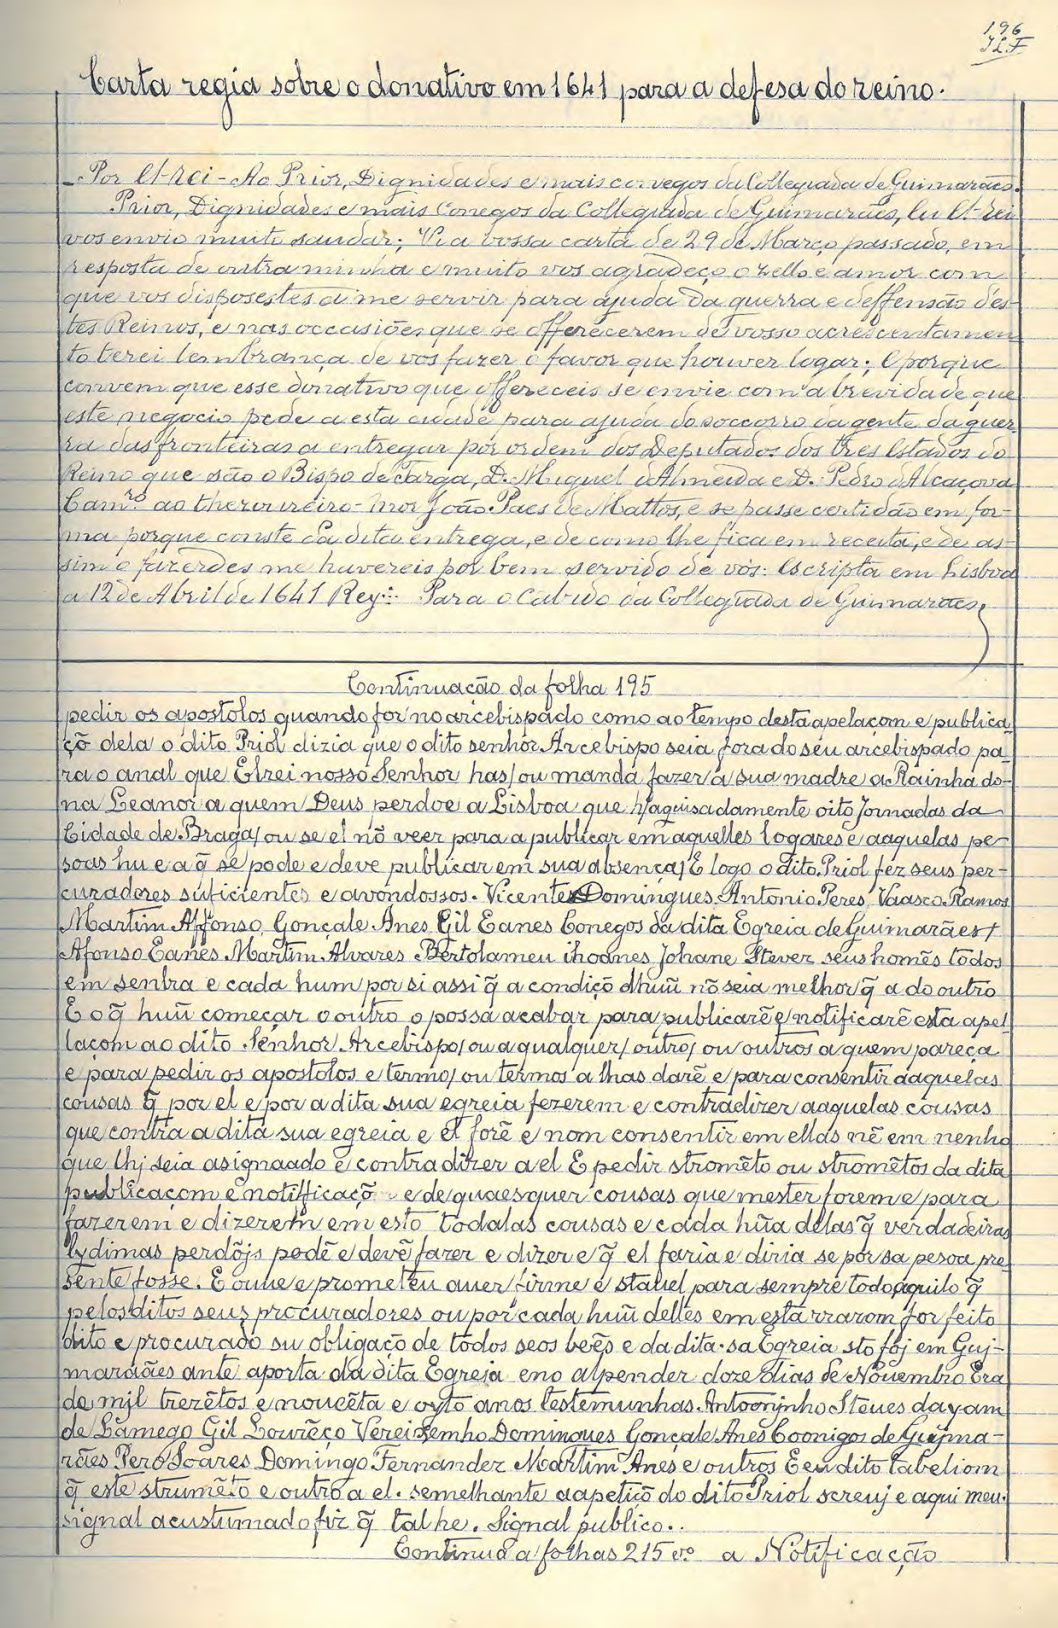 196
Carta regia sobre o donativo em 1641 para a defesa do reino.
Por El-Rei - Ao Prior, Dignidades e mais conegos da Collegiada de Guimarães.
Prior, Dignidades e mais Conegos da Collegiada de Guimarães, Eu El-Rei
vos envio muito saudar; Vi a vossa carta de 29 de Março passado, em
resposta de outra minha e muito vos agradeço o zello e amor com
que vos disposestes a me servir para ajuda da guerra e deffensão des-
tes Reinos, e nas occasiões que se offerecerem de vosso acrescentamen
to terei lembrança de vos fazer o favor que houver logar; E porque
convem que esse donativo que offereceis se envie com a brevidade que
este negocio pede a esta cidade para ajuda do soccorro da gente da guer-
ra das fronteiras a entregar por ordem dos Deputados dos tres Estados do
Reino que são o Bispo de Targa, D. Miguel d'Almeida e D. Pedro d'Alcaçova
Cam.ro ao thezoureiro-mor João Paes de Mattos, e se passe certidão em for-
ma porque conste da dita entrega, e de como lhe fica em receita, e de as-
sim o fazerdes me havereis por bem servido de vós: Escripta em Lisboa
a 12 de Abril de 1641 Rey.:: Para o Cabido da Collegiada de Guimarães
Continuação da folha 195
pedir os apostolos quando for no arcebispado como ao tempo desta apelaçom e publica
çõ dela o dito Priol dizia que o dito senhor Arcebispo seia fora do seu arcebispado pa-
ra o anal que Elrei nosso Senhor has/ou manda fazer/a sua madre a Rainha do-
na Leanor a quem Deus perdoe a Lisboa que h/aguisadamente oito Jornadas da
Cidade de Braga/ou se el nõ veer para a publicar em aquelles logares e aaquelas pe-
soas hu e a q̃ se pode e deve publicar em sua absença/E logo o dito Priol fez seus per-
curadores suficientes e avondossos. Vicente Domingues Antonio Peres, Vaasco Ramos
Martim Affonso Gonçale Anes Gil Eanes Conegos da dita Egreia de Guimarães/
Afonso Eanes Martim Alvares Bertolameu ihoanes Johane Stever seus homẽs todos
em senbra e cada hum por si assi q̃ a condiçõ dhuũ nõ seia melhor q̃ a do outro
E o q̃ huũ começar o outro o possa acabar para publicarẽ e/notificarẽ esta apel
laçom ao dito Senhor Arcebispo/ou a qualquer/outro/ou outros a quem pareça
e para pedir os apostolos e termo/ou termos a lhas darẽ e para consentir aaquelas
cousas q̃ por el e por a dita sua egreia fezerem e contradizer aaquelas cousas
que contra a dita sua egreia e el forẽ e nom consentir em ellas nẽ em nenho
que lhj seia asignaado e contradizer a el E pedir stromẽto ou stromẽtos da dita
publicaçom e notificaçõ e de quaesquer cousas que mester forem e para
fazerem e dizerem em esto todalas cousas e cada hũa delas q̃ verdadeiras
lydimas perdõjs podẽ e devẽ fazer e dizer e q̃ el faria e diria se por sa pesoa pre
sente fosse. E ouue e prometeu auer firme e stauel para sempre todo aquilo q̃
pelos ditos seus procuradores ou por cada huũ delles em esta rrarom for feito
dito e procurado su obligaçõ de todos seos beẽs e da dita sa Egreia sto foj em Guj-
marãães ante aporta da dita Egreja eno alpender doze dias de Nouembro Era
de mjl trezẽtos e nouẽta e oyto anos testemunhas. Antoonjnho Steues dayam
de Lamego Gil Lourẽço Domingues Gonçale Anes Coonigos de Gujma-
rães Pero Soares Domingo Fernandez Martim Anes e outros E eu dito tabeliom
q̃ este strumẽto e outro a el. semelhante aapetiçõ do dito Priol screuj e aqui meu
signal acustumado fiz q̃ tal he. Signal publico..
Continua a folhas 215 v.º a Notificação